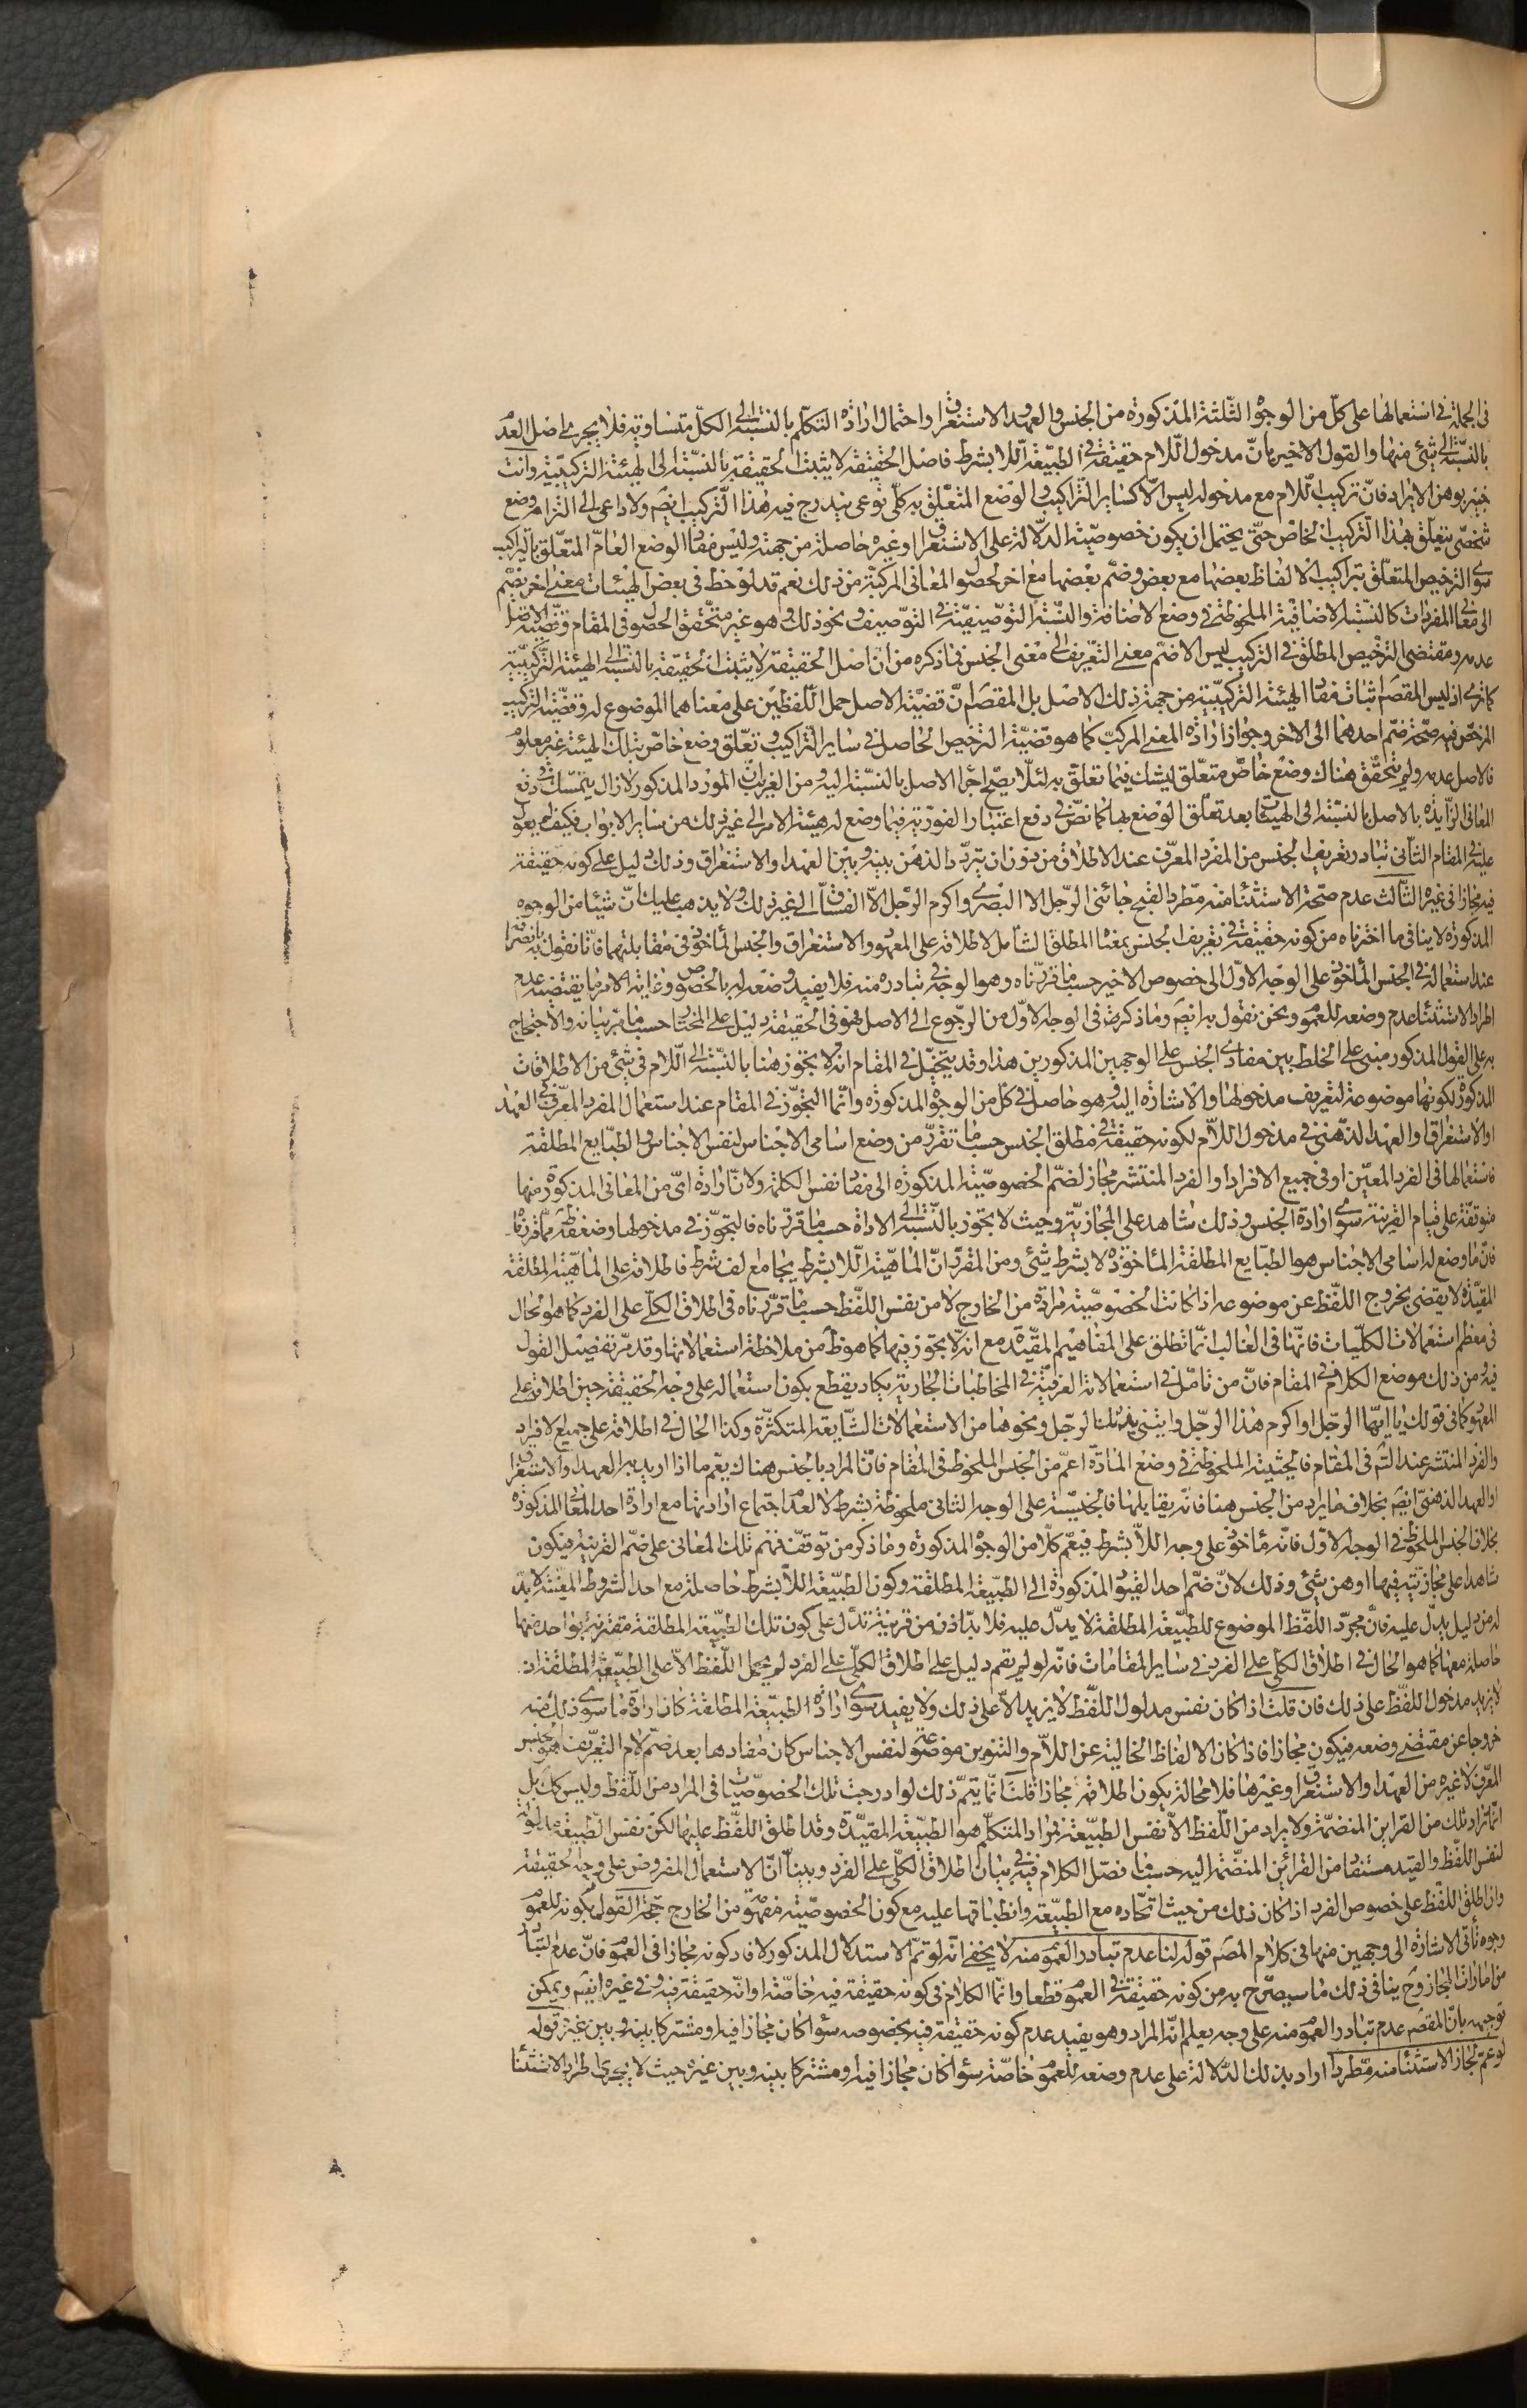 في الجملة في استعمالها على كلّ من الوجوه الثلثة المذكورة من الجنس والعهد والاستغراق واحتمال ارادة المتكلّم بالنسبة الى الكلّ متساوية فلا يجري اصل العدم
بالنسبة الى شئ منها والقول الاخير بانّ مدخول اللام حقيقة في الطبيعة اللا بشرط فاصل الحقيقة لا يثبت الحقيقة بالنسبة الى الهيئة التركيبية وانت
خبير بوهن الايراد فانّ تركيب اللام مع مدخوله ليس الّا كساير التراكيب والوضع المتعلّق به كلّى نوعى يندرج فيه هذا التركيب ايضم ولا داعى الى التزام وضع
شخصى يتعلّق بهذا التركيب الخاص حتّى يحتمل ان يكون خصوصيّة الدلالة على الاستغراق وغيره حاصلة من جهته وليس مفاد الوضع العامّ المتعلّق بالتراكيب
سوى الترخيص المتعلّق بتراكيب الالفاظ بعضها مع بعض وضمّ بعضها مع اخر لحصول المعانى المركبة من ذلك نعم قد لوحظ فى بعض الهيئات معنى اخر يضمّ
الى معانى المفردات كالنسبة الاضافية الملحوظة في وضع الاضافة والنسبة التوصيفيّة في التوصيف ونحو ذلك وهو غير متحقّق الحصول فى المقام وقضيّة الاصل
عدمه ومقتضى الترخيص المطلق في التركيب ليس الا ضمّ معنى التعريف الى معنى الجنس فما ذكره من انّ اصل الحقيقة لا يثبت الحقيقة بالنسبة الى الهيئة التركيبيّة
كما ترى اذ ليس المقصم اثبات مفاد الهيئة التركيبيّة من جهة ذلك الاصل بل المقصم انّ قضيّة الاصل حمل اللفظين على معناهما الموضوع له وقضيّة التركيب
المرخّص فيه صحّة ضمّ احدهما الى الاخر وجواز ارادة المعنى المركب كما هو قضيّة الترخيص الحاصل في ساير التراكيب وتعلّق وضع خاصّ بتلك الهيئة غير معلوم
فالاصل عدمه ولم يتحقّق هناك وضع خاصّ متعلّق ليشك فيما تعلّق به لئلّا يصحّ اجراء الاصل بالنسبة اليه ومن الغرايب انّ المورد المذكور لا زال يتمسّك في دفع
المعانى الزايدة بالاصل بالنسبة الى الهيئات بعد تعلّق الوضع بها كما نصّ في دفع اعتبار الفوريّة فيما وضع له هيئة الامر الى غير ذلك من ساير الابواب فكيف لم يعول
عليه في المقام الثانى تبادر تعريف الجنس من المفرد المعرّف عند الاطلاق من دون ان يتردّد الذهن بينه وبين العهد والاستغراق وذلك دليل على كونه حقيقة
فيه مجازا فى غيره الثالث عدم صحّة الاستثناء منه مطّردا لقبح جائنى الرّجل الا البصرى واكرم الرّجل الّا الفسّاق الى غير ذلك ولا يذهب عليك انّ شيئا من الوجوه
المذكورة لا ينافى ما اخترناه من كونه حقيقة في تعريف الجنس بمعناه المطلق الشامل لاطلاقه على المعهود والاستغراق والجنس المأخوذ فى مقابلتهما فانّا نقول بانصرافه
عند استعماله في الجنس المأخوذ على الوجه الاوّل الى خصوص الاخير حسبما قرّرناه وهو الوجه في تبادره منه فلا يفيد وضعه له بالخصوص وغاية الامر ما يقتضيه عدم
اطراد الاستثناء عدم وضعه للعموم ونحن نقول به ايضم وما ذكرت فى الوجه الاوّل من الرجوع الى الاصل فهو فى الحقيقة دليل على المختار حسبما مرّ بيانه والاحتجاج
به على القول المذكور مبنى على الخلط بين مفادى الجنس على الوجهين المذكورين هذا وقد يتخيّل في المقام انه لا تجوز هنا بالنسبة الى اللام فى شئ من الاطلاقات
المذكورة لكونها موضوعة لتعريف مدخولها والاشارة اليه وهو حاصل في كلّ من الوجوه المذكورة وانّما التجوّز فى المقام عند استعمال المفرد المعرّف في العهد
او الاستغراق او العهد الذهنى في مدخول اللام لكونه حقيقة في مطلق الجنس حسبما تقرّر من وضع اسامى الاجناس لنفس الاجناس والطبايع المطلقة
فاستعمالها فى الفرد المعيّن او فى جميع الافراد او الفرد المنتشر مجاز لضمّ الخصوصيّة المذكورة الى مفاد نفس الكلمة ولانّ ارادة اىّ من المعانى المذكورة منها
متوقّفة على قيام القرينة سوى ارادة الجنس وذلك شاهد على المجازيّة وحيث لا تجوّز بالنسبة الى الاداة حسبما قرّرناه فالتجوّز فى مدخولها وضعفه ظم ممّا قررناه
فانّ ما وضع له اسامى الاجناس هو الطبايع المطلقة المأخوذة لا بشرط شئ ومن المقرّر انّ الماهيّة اللا بشرط يجامع الف شرط فاطلاقه على الماهيّة المطلقة
المقيّدة لا يقضى بخروج اللفظ عن موضوعه اذا كانت الخصوصيّة مرادة من الخارج لا من نفس اللفظ حسبما قرّرناه فى اطلاق الكلّى على الفرد كما هو الحال
فى معظم استعمالات الكليّات فانّها فى الغالب انّما تطلق على المفاهيم المقيّدة مع انّه لا تجوّز فيها كما هو ظم من ملاحظة استعمالاتها وقد مرّ تفصيل القول
فيه ومن ذلك موضع الكلام في المقام فانّ من تامّل في استعمالاته العرفيّة في المخاطبات الجارية يكاد يقطع بكون استعماله على وجه الحقيقة حين اطلاقه على
المعهود كما فى قولك يا ايّها الرجل او اكرم هذا الرجل وايتنى بذلك الرجل ونحوها من الاستعمالات الشايعة المتكثّرة وكذا الحال في اطلاقه على جميع الافراد
والفرد المنتشر عند التم فى المقام فالحيثية الملحوظة في وضع المادّة اعمّ من الجنس الملحوظ فى المقام فانّ المراد بالجنس هناك يعمّ ما اذا اريد به العهد او الاستغراق
او العهد الذهنىّ ايضم بخلاف ما يراد من الجنس هنا فانّه يقابلها فالجنسيّة على الوجه الثانى ملحوظة بشرط لا لعدم اجتماع ارادتها مع ارادة احد المعانى المذكورة
بخلاف الجنس الملحوظ فى الوجه الاوّل فانّه مأخوذ على وجه اللا بشرط فيعمّ كلّا من الوجوه المذكورة وما ذكر من توقّف فهم تلك المعانى على ضمّ القرينة فيكون
شاهدا على مجازيّته فيها اوهن شئ وذلك لانّ ضمّ احد القيود المذكورة الى الطبيعة المطلقة وكون الطبيعة اللا بشرط حاصلة مع احد الشروط المعيّنة لا بدّ
له من دليل يدلّ عليه فانّ مجرّد اللفظ الموضوع للطبيعة المطلقة لا يدلّ عليه فلا بدّ اذن من قرينة تدلّ على كون تلك الطبيعة المطلقة مقترنة بواحد منها
حاصلة معها كما هو الحال في اطلاق الكلّى على الفرد في ساير المقامات فانّه لو لم يقم دليل على اطلاق الكلّى على الفرد لم يحمل اللفظ الّا على الطبيعة المطلقة اذ
لا يزيد مدخول اللفظ على ذلك فان قلت اذا كان نفس مدلول اللفظ لا يزيد الّا على ذلك ولا يفيد سوى ارادة الطبيعة المطلقة كان ارادة ما سوى ذلك منه
خروجا عن مقتضى وضعه فيكون مجازا فاذا كان الالفاظ الخالية عن اللام والتنوين موضوعة لنفس الاجناس كان مفادها بعد ضمّ لام التعريف هو الجنس
المعرّف لا غيره من العهد والاستغراق وغيرها فلا محالة يكون اطلاقه مجازا قلنا انّما يتمّ ذلك لو ادرجت تلك الخصوصيّات فى المراد من اللفظ وليس كك بل
انّما تراد تلك من القراين المنضمّة ولا يراد من اللفظ الا نفس الطبيعة فمراد المتكلّم هو الطبيعة المقيّدة وقد اطلق اللفظ عليها لكن نفس الطبيعة مدلولة
لنفس اللفظ والقيد مستفاد من القرائن المنضمّة اليه حسبما فصّل الكلام فيه في بيان اطلاق الكلّى على الفرد وبيّنا انّ الاستعمال المفروض على وجه الحقيقة
وان اطلق اللفظ على خصوص الفرد اذا كان ذلك من حيث اتحاده مع الطبيعة وانطباقها عليه مع كون الخصوصيّة مفهومة من الخارج حجّة القول بكونه للعموم
وجوه تأتى الاشارة الى وجهين منها فى كلام المصم قوله لنا عدم تبادر العموم منه لا يخفى انّه لو تمّ الاستدلال المذكور لافاد كونه مجازا فى العموم فانّ عدم التبادر
من امارات المجاز وح ينافى ذلك ما سيصرّح به من كونه حقيقة في العموم قطعا وانّما الكلام فى كونه حقيقة فيه خاصّة او انّه حقيقة فيه وفي غيره ايضم ويمكن
توجيهه بانّ المقصم عدم تبادر العموم منه على وجه يعلم انّه المراد وهو يفيد عدم كونه حقيقة فيه بخصوصه سواء كان مجازا فيه او مشتركا بينه وبين غيره قوله
لو عمّ لجاز الاستثناء منه مطّردا اراد بذلك الدلالة على عدم وضعه للعموم خاصّة سواء كان مجازا فيه او مشتركا بينه وبين غيره حيث لا يجرى اطراد الاستثناء